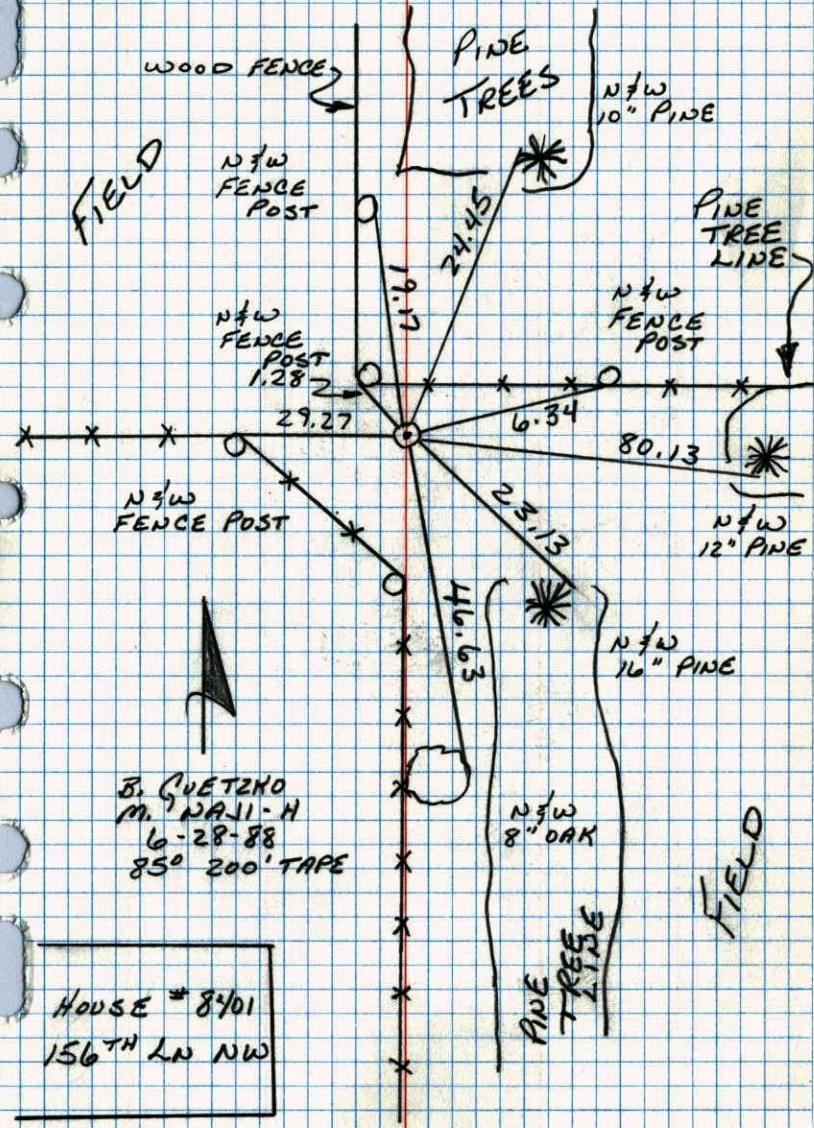 PINE
TREES
WOOD FENCE
N & W
10" PINE
FIELD
N & W
FENCE
POST
24.45
PINE
TREE
LINE
19.17
N & W
FENCE
POST
1.28
N & W
FENCE
POST
29.27
6.34
80.13
N & W
FENCE POST
23.13
N & W
12" PINE
46.63
N & W
16" PINE
B. GUETZKO
M. NAJI-H
6-28-88
85° 200' TAPE
N & W
8" OAK
FIELD
PINE
TREE
LINE
HOUSE # 8401
156TH LN NW